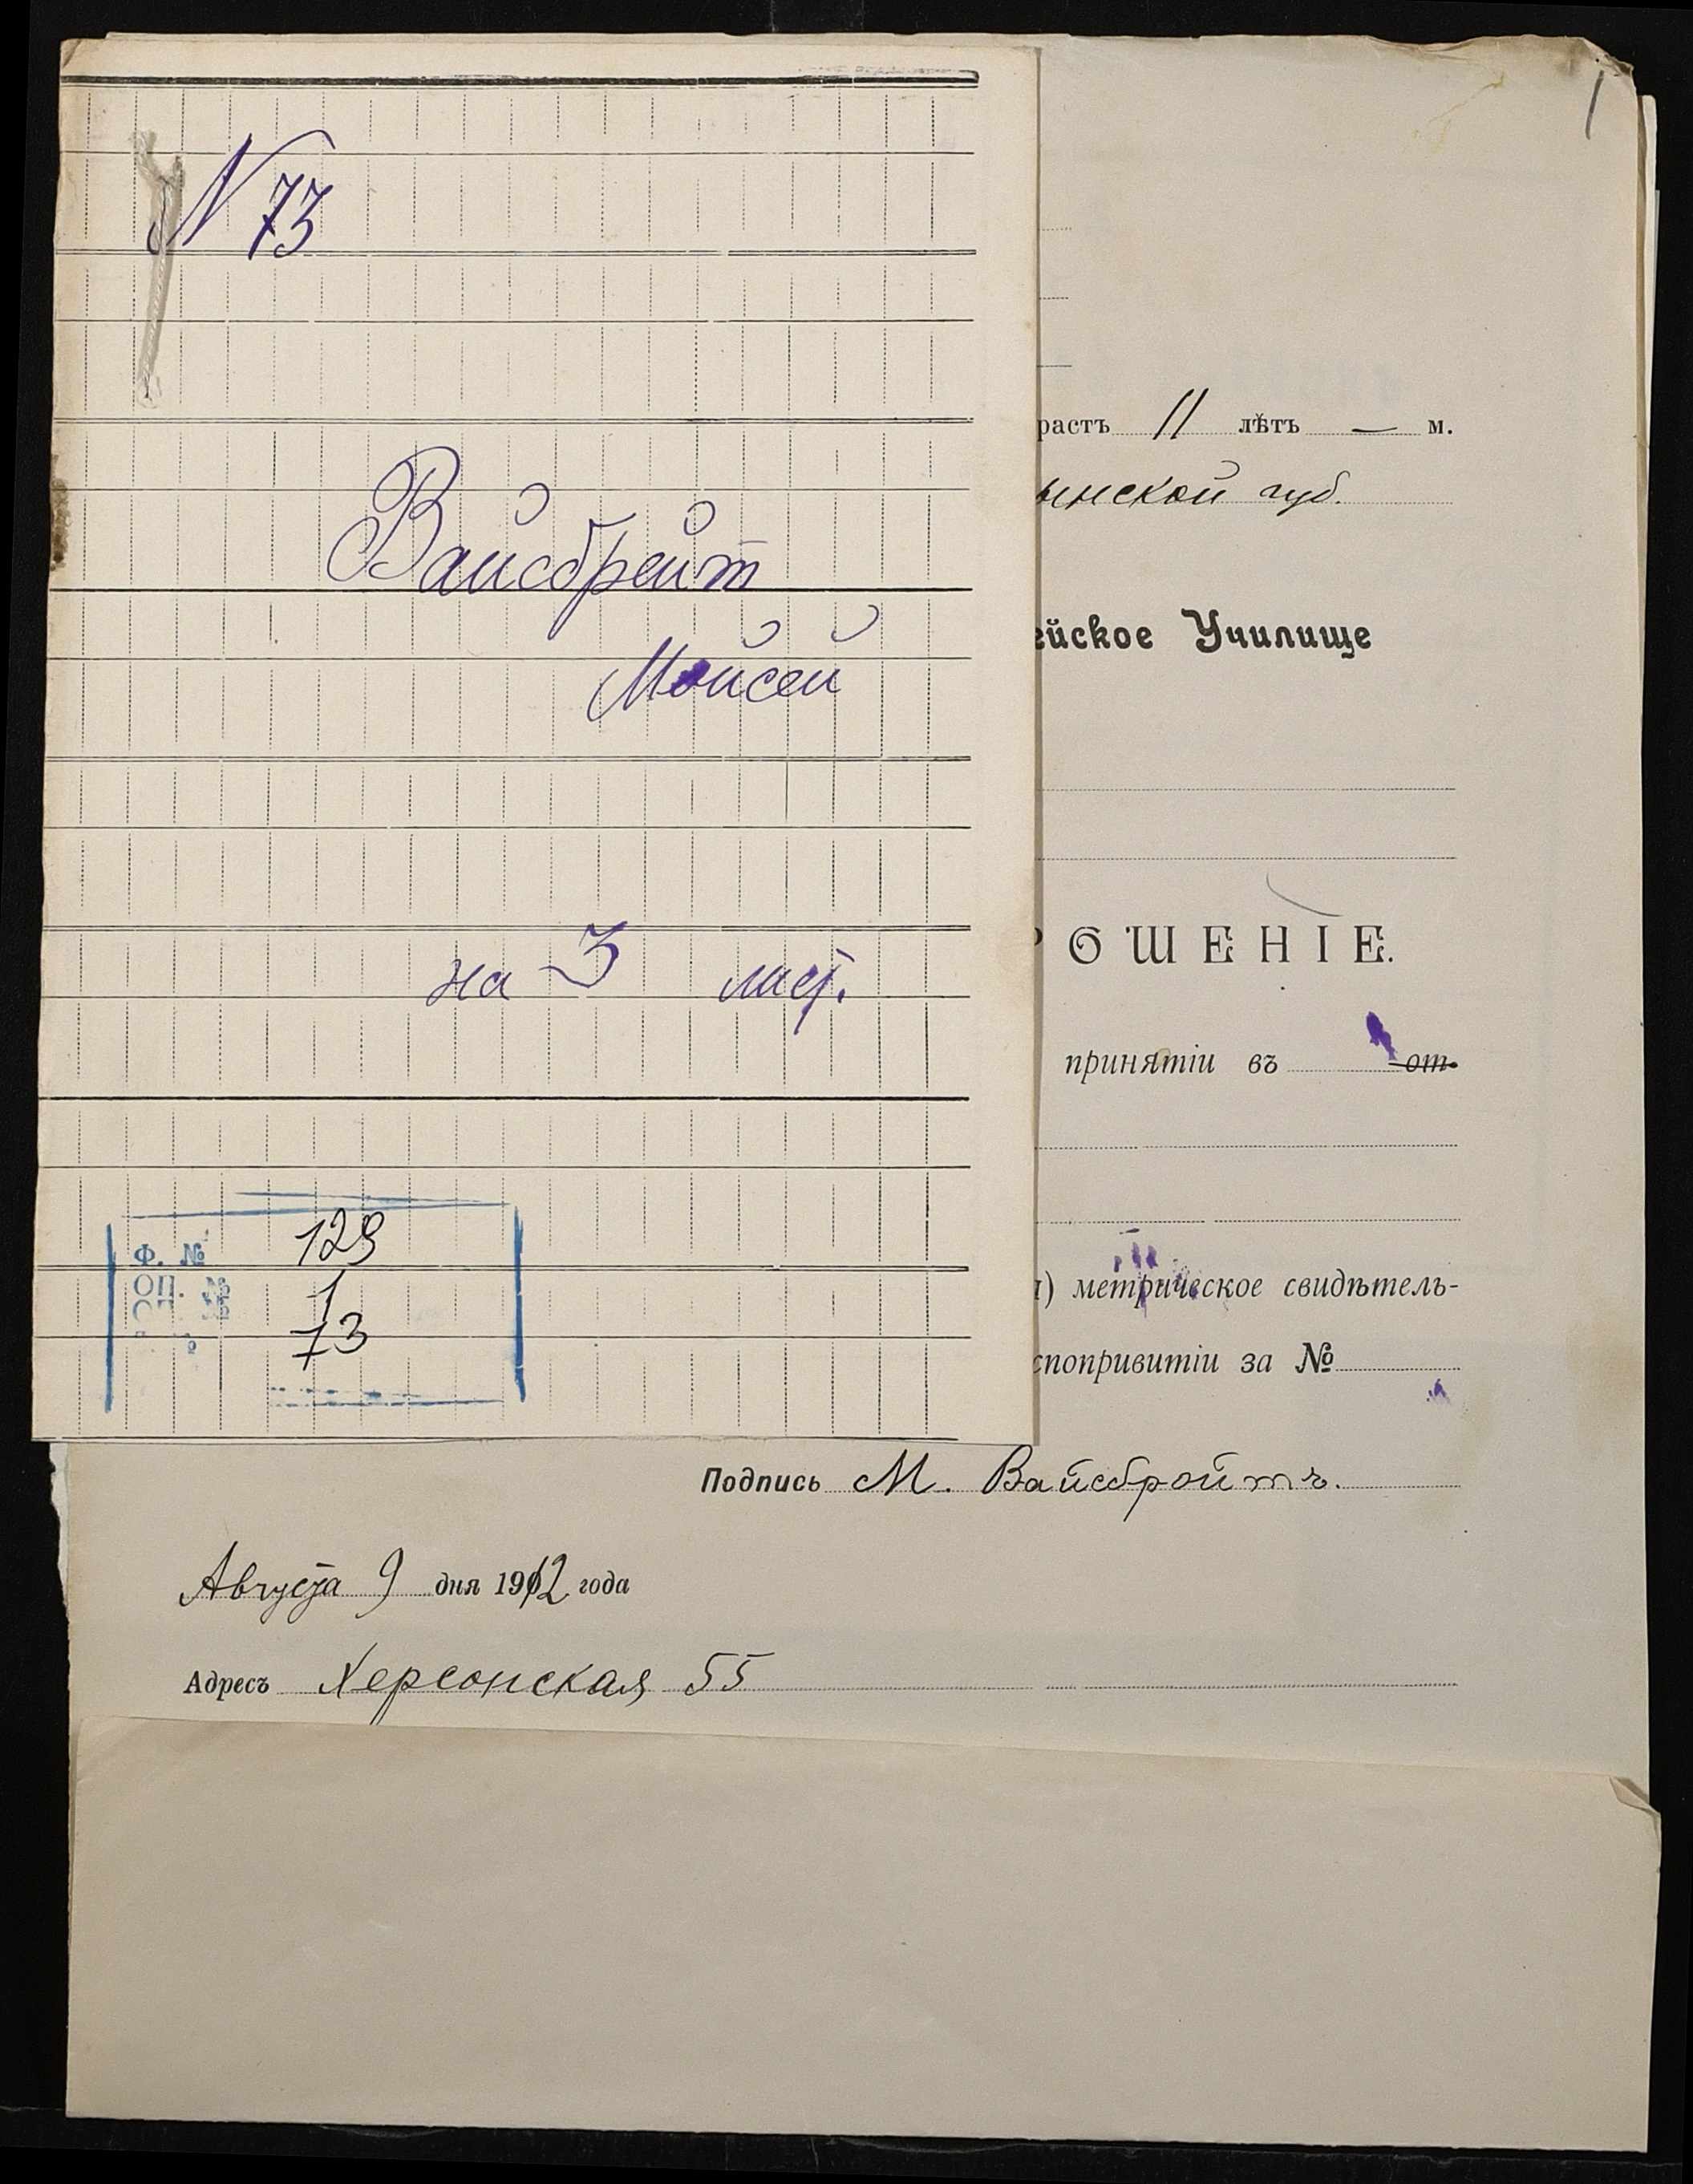 N 73
Вайсбрейт
Мойсей
на 3 лист.
Ф. № 129
ОП. № 1
73
1
растъ 11 лѣтъ — м.
ынской губ.
ейское Училище
РОШЕНІЕ.
принятіи въ от
метрическое свидѣтель-
спопривитіи за №
Подпись М. Вайсбройтъ.
Августа 9 дня 1912 года
Адресъ Херсонская 55